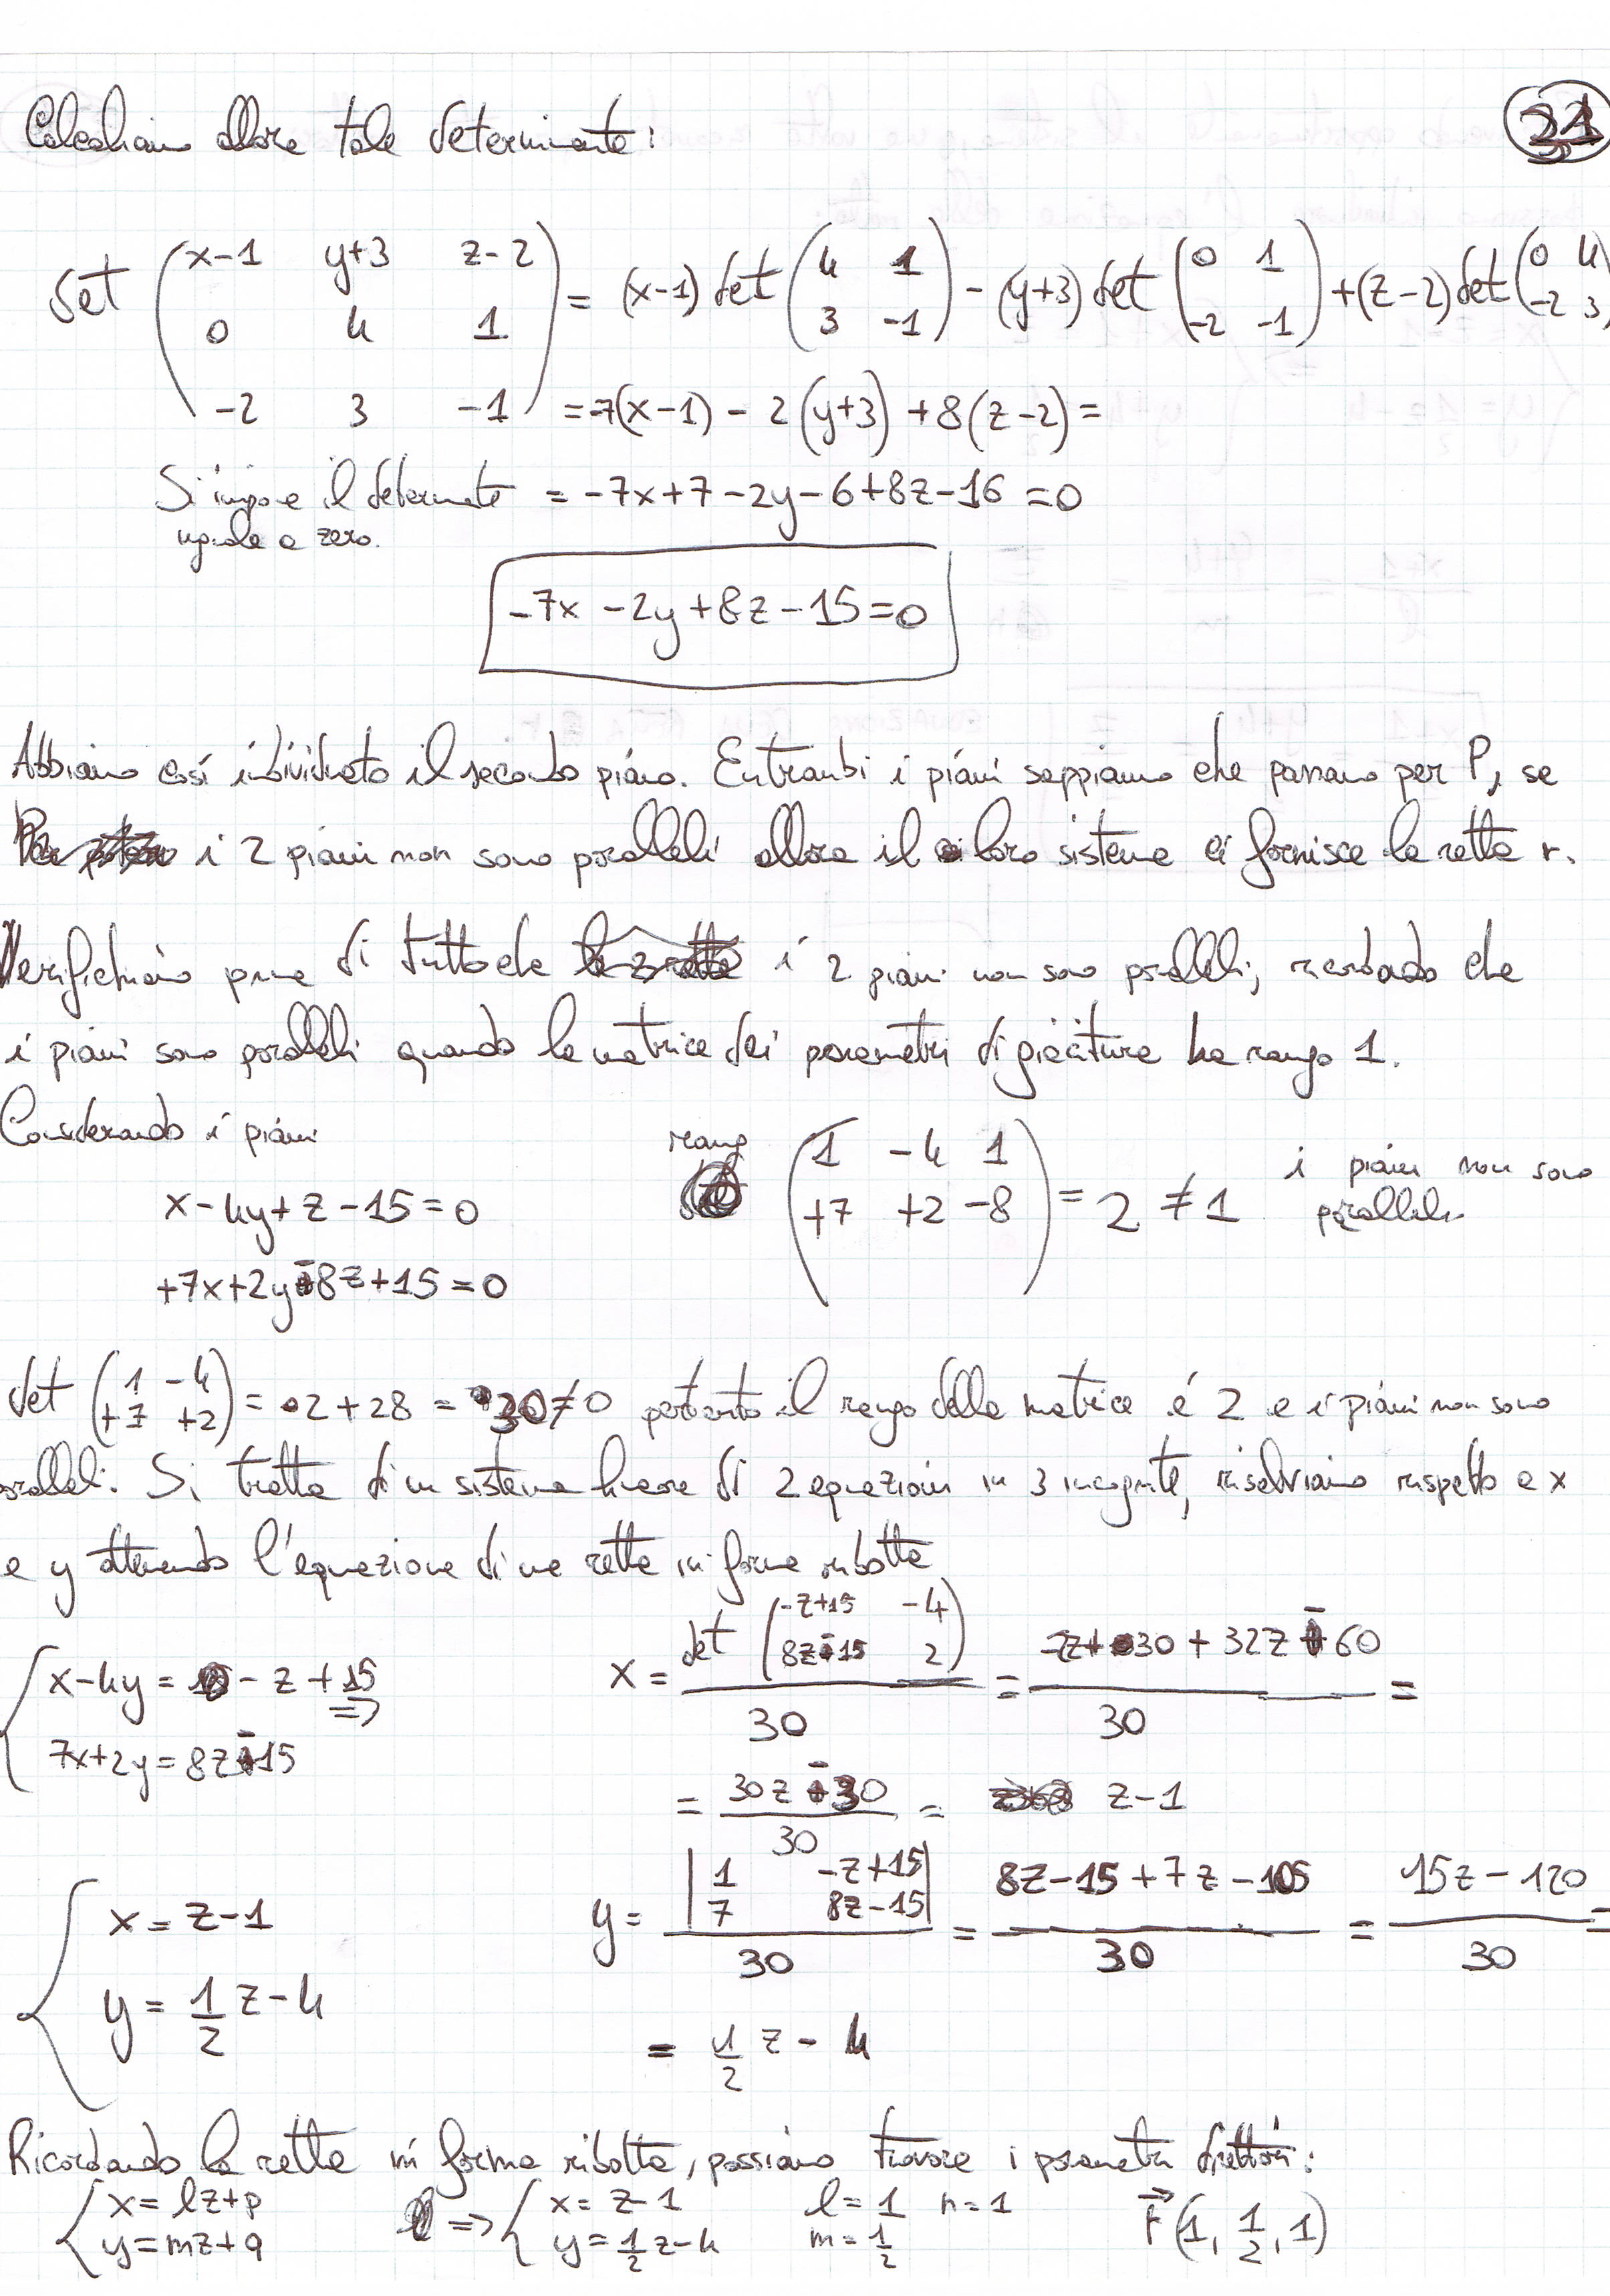 Calcoliamo allora tale determinante:
21
det (x-1 y+3 z-2
0 4 1
-2 3 -1) = (x-1) det (4 1
3 -1) - (y+3) det (0 1
-2 -1) + (z-2) det (0 4
-2 3)
= -7(x-1) - 2(y+3) + 8(z-2) =
Si impone il determinante = -7x+7-2y-6+8z-16 = 0
uguale a zero.
-7x -2y +8z -15 = 0
Abbiamo così individuato il secondo piano. Entrambi i piani sappiamo che passano per P, se
i 2 piani non sono paralleli allora il loro sistema ci fornisce la retta r.
Verifichiamo prima di tutto che i 2 piani non sono paralleli, ricordando che
i piani sono paralleli quando la matrice dei parametri di giacitura ha rango 1.
Considerando i piani
x-4y+z-15=0
+7x+2y-8z+15=0
rang (1 -4 1
+7 +2 -8) = 2 ≠ 1 i piani non sono
paralleli
det (1 -4
+7 +2) = 2+28 = 30≠0 pertanto il rango della matrice é 2 e i piani non sono
paralleli. Si tratta di un sistema lineare di 2 equazioni in 3 incognite, risolviamo rispetto a x
e y ottenendo l'equazione di una retta in forma ridotta
{x-4y = -z+15 =>
7x+2y = 8z-15
x = det (-z+15 -4
8z-15 2) / 30 = -2z+30+32z-60 / 30 =
= 30z-30 / 30 = z-1
y = |1 -z+15
7 8z-15| / 30 = 8z-15+7z-105 / 30 = 15z-120 / 30 =
= 1/2 z - 4
{x = z-1
y = 1/2 z-4
Ricordando la retta in forma ridotta, possiamo trovare i parametri direttori:
{x = lz+p
y = mz+q
=> {x = z-1
y = 1/2 z-4
l=1 n=1
m=1/2
r(1, 1/2, 1)